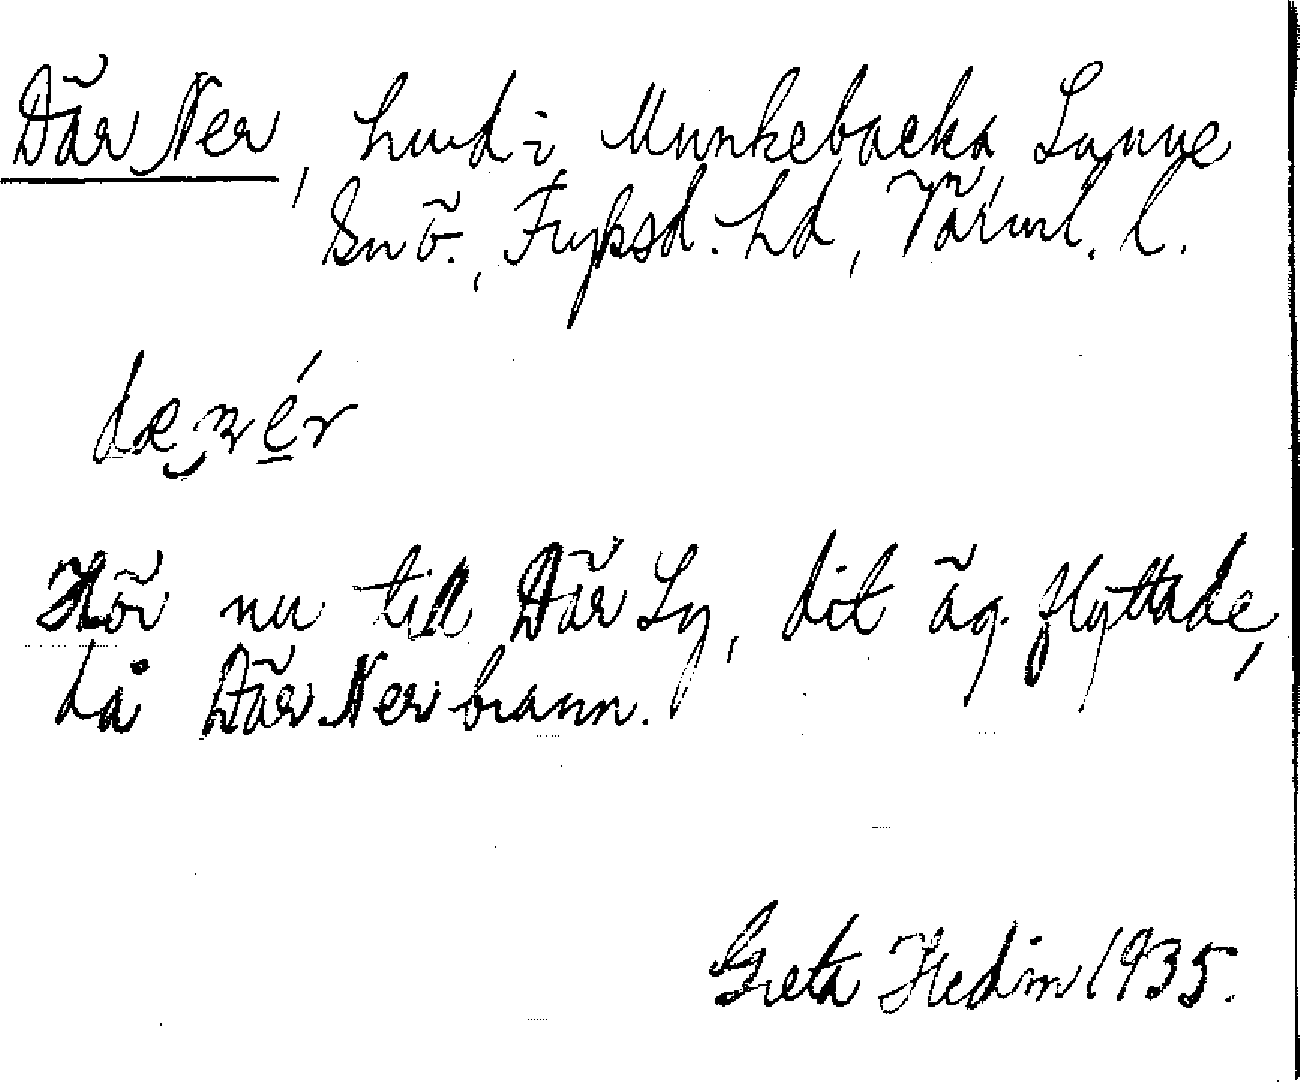 Där Ner, hmd i Munkebacka Lysvik
sn ö., Fryksd. hd, Värml. l.
Hör nu till Där Ly, dit äg. flyttade,
då Där Ner brann.
Greta Hedin 1935.